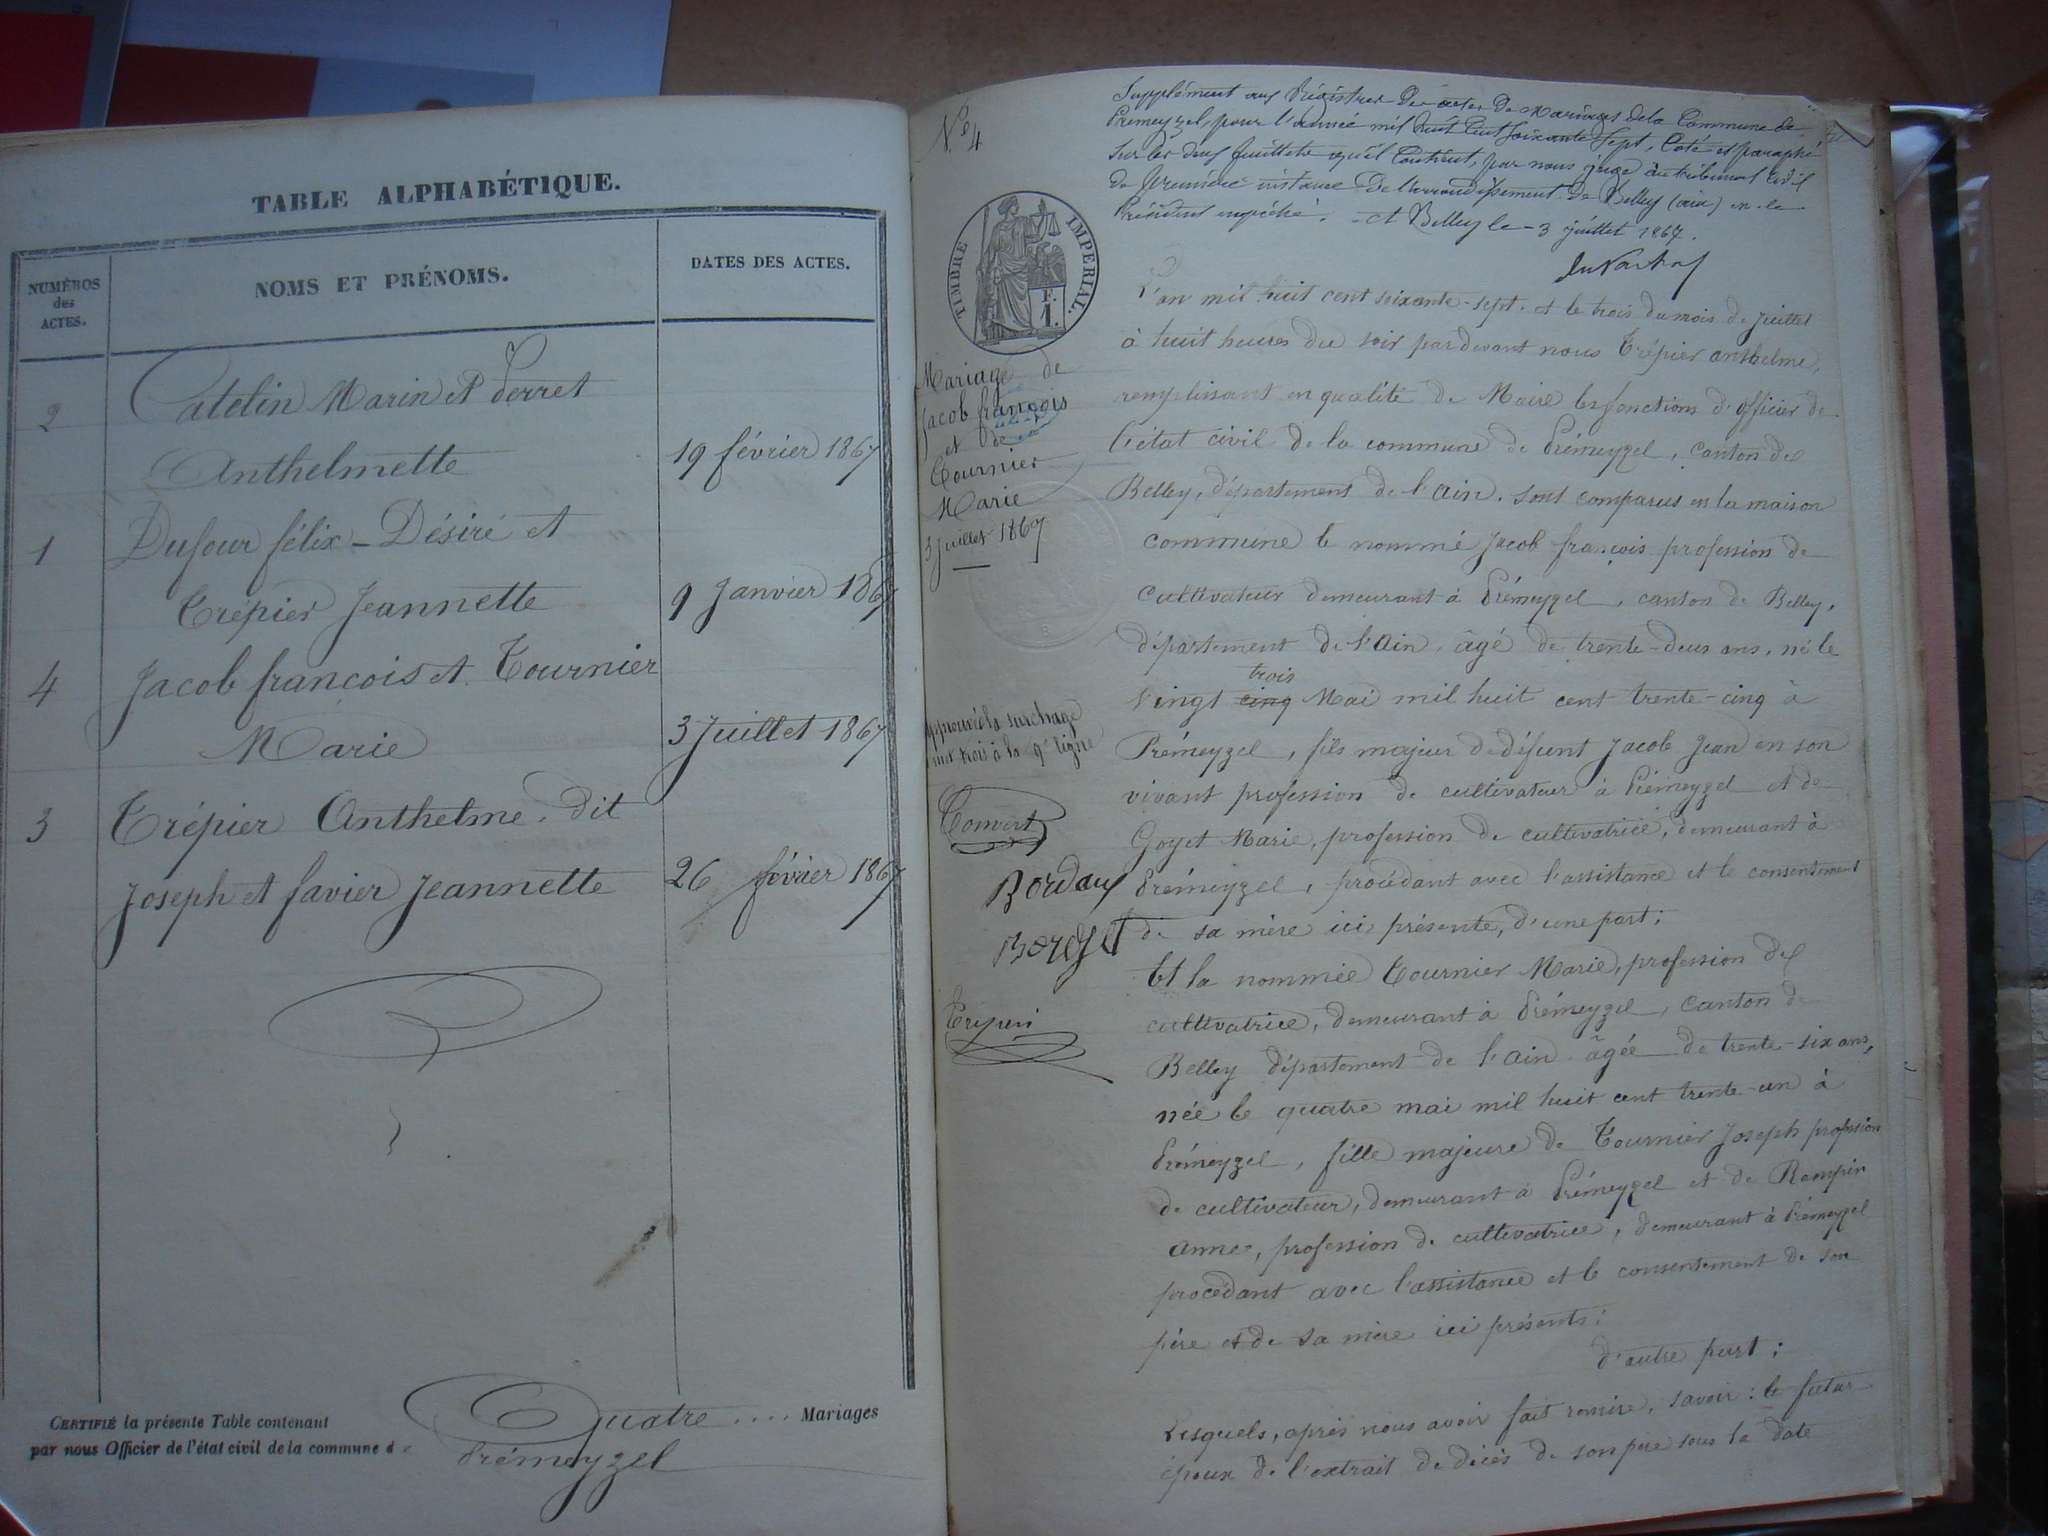 TABLE ALPHABÉTIQUE.
NUMÉROS des ACTES.
NOMS ET PRÉNOMS.
DATES DES ACTES.
2 Catelin Marin et Perret
Anthelmette 19 février 1867
1 Dufour félix-Désiré et
Trépier Jeannette 9 Janvier 1867
4 Jacob françois et Tournier
Marie 3 Juillet 1867
3 Trépier Anthelme, dit
Joseph et favier Jeannette 26 février 1867
CERTIFIÉ la présente Table contenant Quatre .... Mariages
par nous Officier de l'état civil de la commune de Prémeyzel
N.° 4
Supplément aux Régistres des actes de mariages de la Commune de
Prémeyzel, pour l'année mil huit cent soixante sept, Coté et paraphé
sur les deux feuillets qu'il Contient, par nous juge au tribunal Civil
de Première instance de l'arrondissement de Belley (ain) en le
Président empêché. A Belley le 3 juillet 1867.
TIMBRE IMPERIAL.
F.
1.
Mariage de
Jacob françois
et de
Tournier
Marie
3 Juillet 1867
L'an mil huit cent soixante-sept et le trois du mois de Juillet
à huit heures du soir pardevant nous Trépier anthelme,
remplissant en qualité de Maire les fonctions d'officier de
l'état civil de la commune de Prémeyzel, canton de
Belley, département de l'ain. sont comparus en la maison
commune le nommé Jacob françois profession de
cultivateur demeurant à Prémeyzel, canton de Belley,
département de l'Ain, âgé de trente-deux ans, né le
trois
vingt cinq Mai mil huit cent trente-cinq à
Prémeyzel, fils majeur de défunt Jacob Jean en son
vivant profession de cultivateur à Prémeyzel et de
Goyet Marie, profession de cultivatrice, demeurant à
Prémeyzel, procédant avec l'assistance et le consentement
de sa mère ici présente, d'une part;
Et la nommée Tournier Marie, profession de
cultivatrice, demeurant à Prémeyzel, canton de
Belley département de l'ain âgée de trente-six ans,
née le quatre mai mil huit cent trente-un à
Prémeyzel, fille majeure de Tournier Joseph profession
de cultivateur, demeurant à Prémeyzel et de Rampin
anne, profession de cultivatrice, demeurant à Prémeyzel
procédant avec l'assistance et le consentement de son
père et de sa mère ici présents;
d'autre part;
Lesquels, après nous avoir fait remise, savoir: le futur
époux de l'extrait de décès de son père sous la date
approuvé la surcharge
mot trois à la 9e ligne
Convert
Bordaux
Borget
Trépier